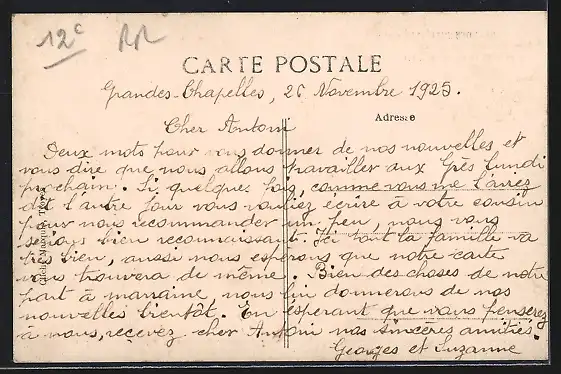 12c RR
CARTE POSTALE
Grandes-Chapelles, 26 Novembre 1925.
Adresse
Cher Antoni
Deux mots pour vous donner de nos nouvelles et
vous dire que nous allons travailler aux Grès lundi
prochain. Si quelques fois, comme vous me l'aviez
dit l'autre jour vous vouliez écrire à votre cousin
pour nous recommander un peu, nous vous
serions bien reconnaissant. Ici tout la famille va
très bien, aussi nous espérons que notre carte
vous trouvera de même. Bien des choses de notre
part à marraine, nous lui donnerons de nos
nouvelles bientôt. En espérant que vous penserez
à nous, recevez cher Antoni nos sincères amitiés.
Georges et Suzanne